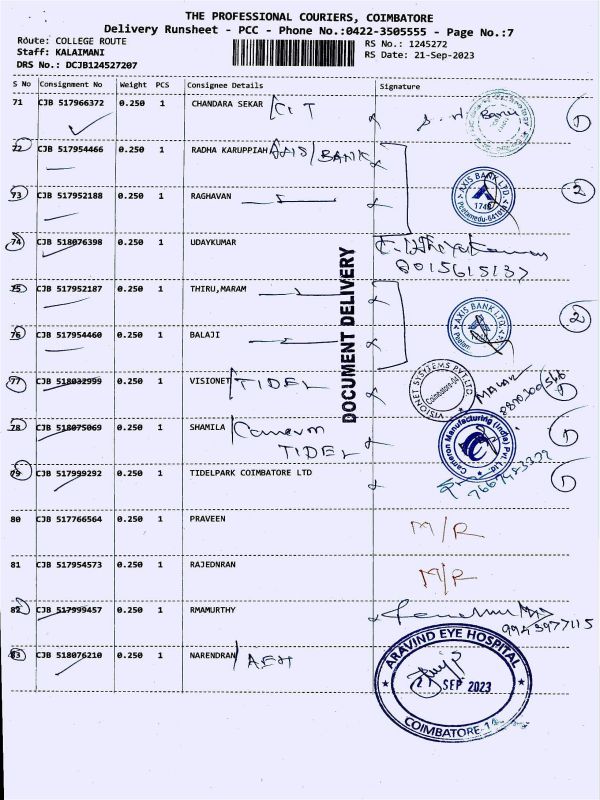 THE PROFESSIONAL COURIERS, COIMBATORE
Delivery Runsheet - PCC - Phone No.:0422-3505555 - Page No.:7
Route: COLLEGE ROUTE
RS No.: 1245272
Staff: KALAIMANI
RS Date: 21-Sep-2023
DRS No.: DCJB124527207
S No Consignment No Weight PCS Consignee Details Signature
71 CJB 517966372 0.250 1 CHANDARA SEKAR CIT
72 CJB 517954466 0.250 1 RADHA KARUPPIAH AXIS/BANK
73 CJB 517952188 0.250 1 RAGHAVAN AXIS BANK LTD 1740 2
74 CJB 518076398 0.250 1 UDAYKUMAR
8015615137
75 CJB 517952187 0.250 1 THIRU,MARAM
DOCUMENT DELIVERY
76 CJB 517954460 0.250 1 BALAJI AXIS BANK LTD. 2
77 CJB 518032999 0.250 1 VISIONET TIDEL VISIONET SYSTEMS PVT LTD
78 CJB 518075069 0.250 1 SHAMILA Cameron Cameron Manufacturing (India) Pvt. Ltd. 1
TIDEL
79 CJB 517999292 0.250 1 TIDELPARK COIMBATORE LTD 1
80 CJB 517766564 0.250 1 PRAVEEN M/R
81 CJB 517954573 0.250 1 RAJEDNRAN M/R
82 CJB 517999457 0.250 1 RMAMURTHY
9943977115
83 CJB 518076210 0.250 1 NARENDRAN AEH
ARAVIND EYE HOSPITAL
21 SEP 2023
COIMBATORE-1